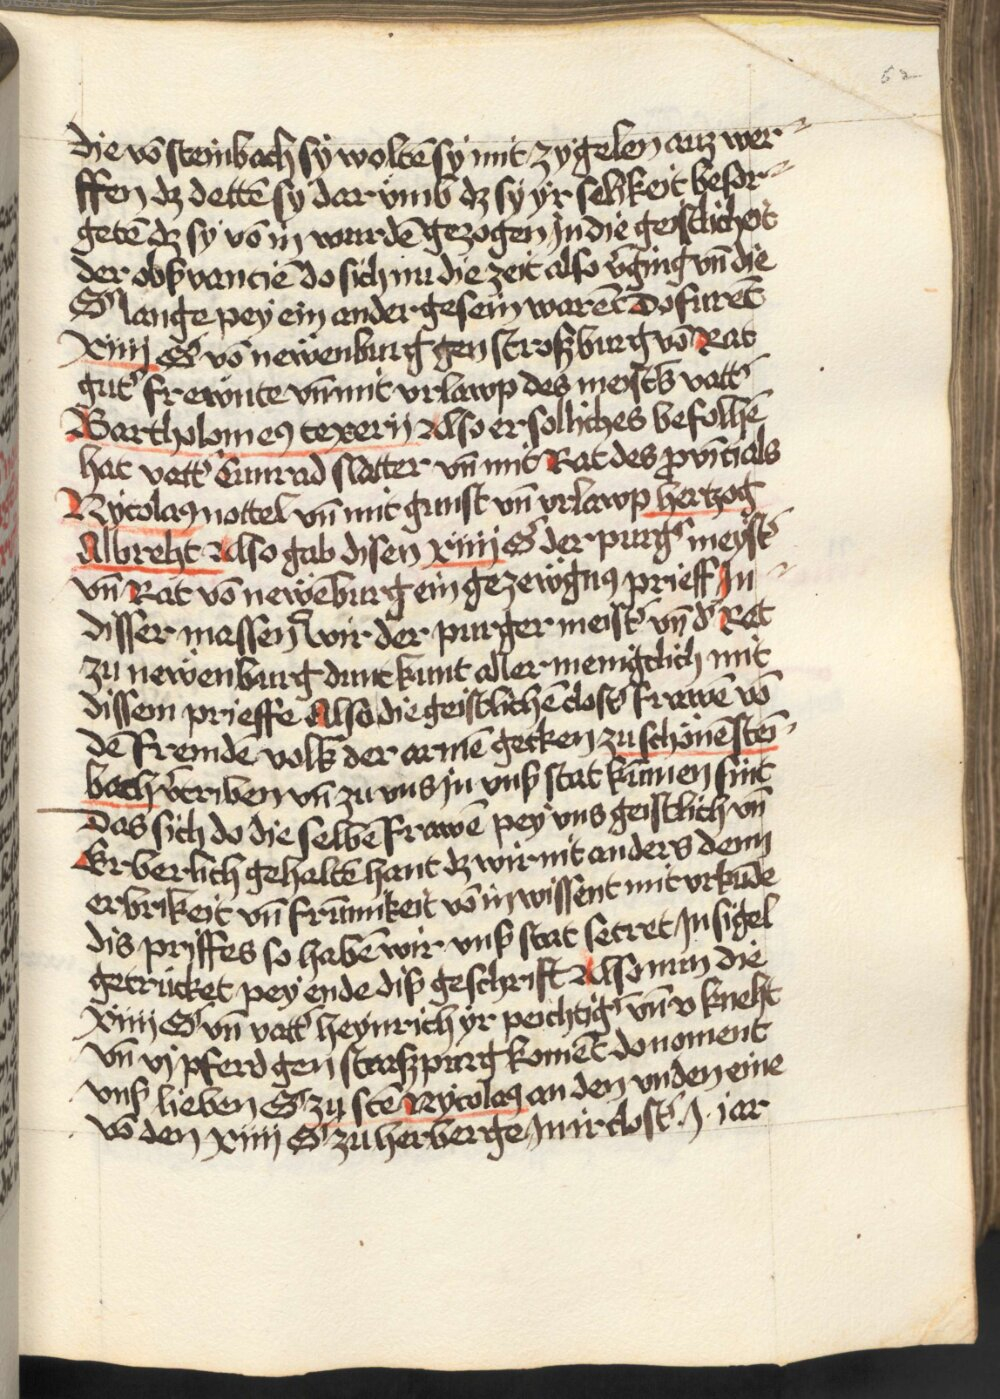 62
die vō steinbach sy woltē sy mit zygelen auz wer
ffen dz dettē sy dar vmb dz sy yr selikeit besor
getē dz sy vō in wurdē gezogen in die geistlicheit
der obs̄vanciē do sich nu die zeit also v̄ging vn̄ die
Sˢ lange pey ein ander gesein warēt Do furēt
xiiij Sˢ vō newenburg gen stroßburg vō Rat
gutˢ frewnte vn̄ mit vrlawp des meistˢs vattˢ
Bartholomeꝰ texerij Also er solliches befolhē
hat vattˢ Cunrad slatter vn̄ mit Rat des provīcials
Nycolaꝰ nottel vn̄ mit gunst vn̄ vrlawp hertzog
Albreht Also gab disen xiiij Sˢ der purgˢ meystˢ
vn̄ Rat vō newēburg ein gezewgnꝰ prieff In
disser massen Wir der purger meistˢ vn̄ dˢ Rat
zu newenburg dunt kunt aller meniglich mit
dissem prieffe Also die geistlichē clostˢ frawē vō
dē fremdē volk der armē gecken zu schönēstei
bach v̄triben vn̄ zu vns in vnsˢ stat kumen sint
Das sich do die selbē frawē pey vns geistlich vn̄
Erberlich gehaltē hant dz wir nit anders denn
erbrikeit vn̄ frumikeit vō in wissent mit vrkūde
dis priffes so habē wir vnsˢ stat secret Insigel
getrücket pey ende disˢ geschrift Also nun die
xiiij Sˢ vn̄ vattˢ heynrich yr peichtigˢ vn̄ v kneht
vn̄ vj pferd gen straßpurg komēt do noment
vnsˢ lieben Sˢ zu stē Nycolaꝰ an den vnden eine
vō den xiiij Sˢ zu herberge In ir clostˢ .j. iar